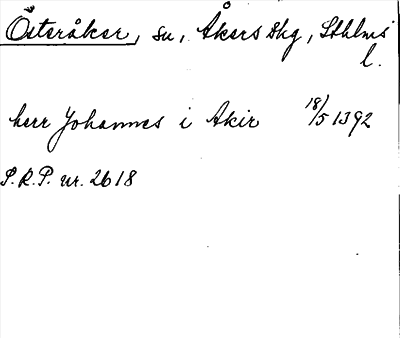 Österåker, sn, Åkers skg, Sthlms
l.
herr Johannes i Akir 18/5 1392
S.R.P. nr. 2618